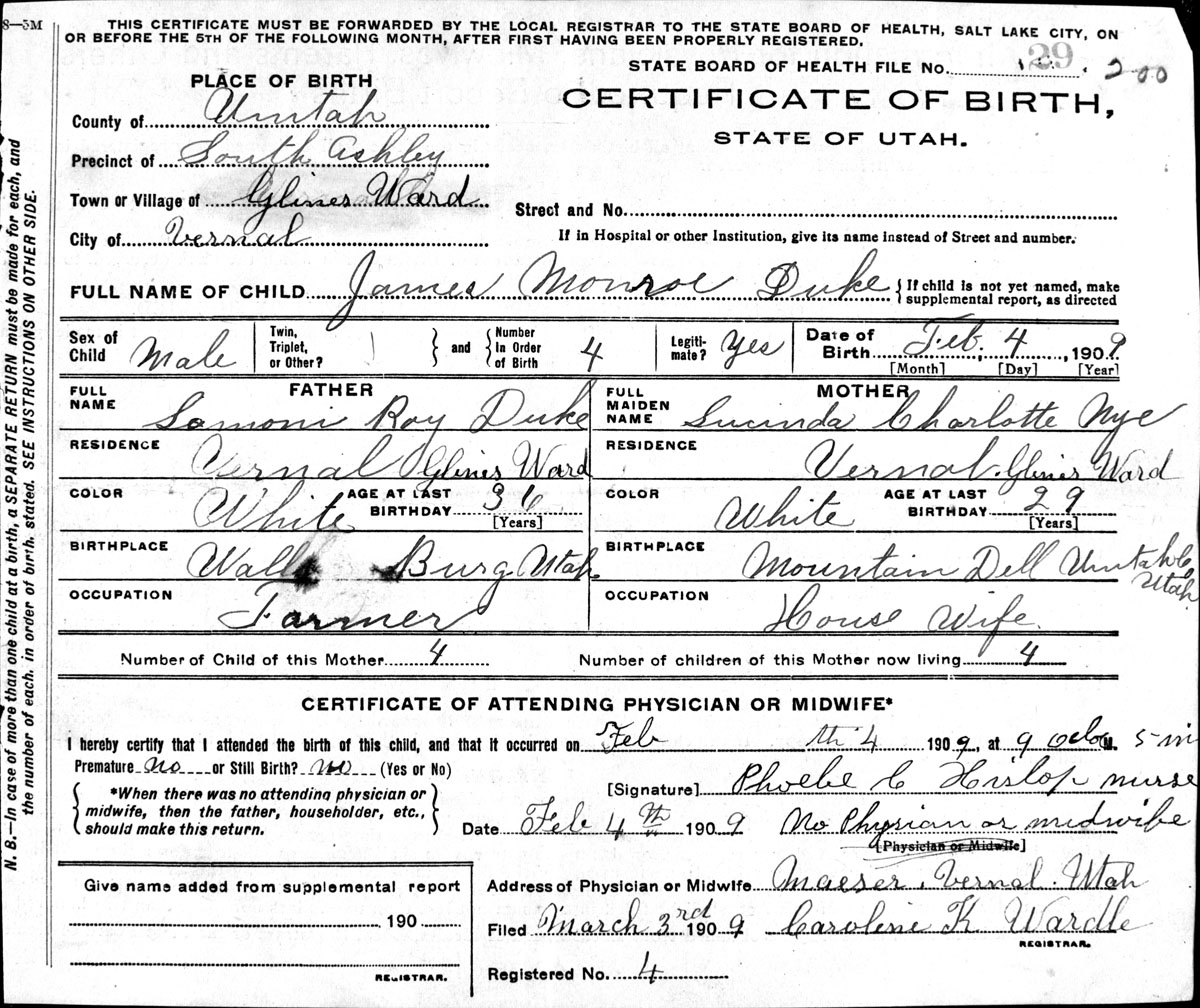 8—5M
THIS CERTIFICATE MUST BE FORWARDED BY THE LOCAL REGISTRAR TO THE STATE BOARD OF HEALTH, SALT LAKE CITY, ON
OR BEFORE THE 5TH OF THE FOLLOWING MONTH, AFTER FIRST HAVING BEEN PROPERLY REGISTERED.
STATE BOARD OF HEALTH FILE No. 29 200
PLACE OF BIRTH
CERTIFICATE OF BIRTH,
STATE OF UTAH.
County of Uintah
Precinct of South Ashley
Town or Village of Glines Ward
Street and No.
City of Vernal
If in Hospital or other Institution, give its name instead of Street and number.
FULL NAME OF CHILD James Monroe Duke { If child is not yet named, make supplemental report, as directed
Sex of Child Male
Twin, Triplet, or Other? } and { Number In Order of Birth 4
Legitimate? Yes
Date of Birth Feb. 4, 1909
[Month] [Day] [Year]
FATHER
MOTHER
FULL NAME Lamoni Roy Duke
FULL MAIDEN NAME Lucinda Charlotte Nye
RESIDENCE Vernal Glines Ward
RESIDENCE Vernal. Glines Ward
COLOR White AGE AT LAST BIRTHDAY 36 [Years]
COLOR White AGE AT LAST BIRTHDAY 29 [Years]
BIRTHPLACE Walls Burg Utah
BIRTHPLACE Mountain Dell Uintah Co Utah
OCCUPATION Farmer
OCCUPATION House Wife
Number of Child of this Mother 4
Number of children of this Mother now living 4
CERTIFICATE OF ATTENDING PHYSICIAN OR MIDWIFE*
I hereby certify that I attended the birth of this child, and that it occurred on Feb th 4 1909, at 9 oclo M. 5 m
Premature No or Still Birth? No (Yes or No)
[Signature] Phoebe C Hislop nurse
{ *When there was no attending physician or midwife, then the father, householder, etc., should make this return. }
Date Feb 4th 1909 No Physian or midwife
[Physician or Midwife]
Give name added from supplemental report
190
REGISTRAR.
Address of Physician or Midwife Maeser. Vernal. Utah
Filed March 3rd 1909 Caroline K Wardle
REGISTRAR.
Registered No. 4
N. B.—In case of more than one child at a birth, a SEPARATE RETURN must be made for each, and
the number of each, in order of birth, stated. SEE INSTRUCTIONS ON OTHER SIDE.